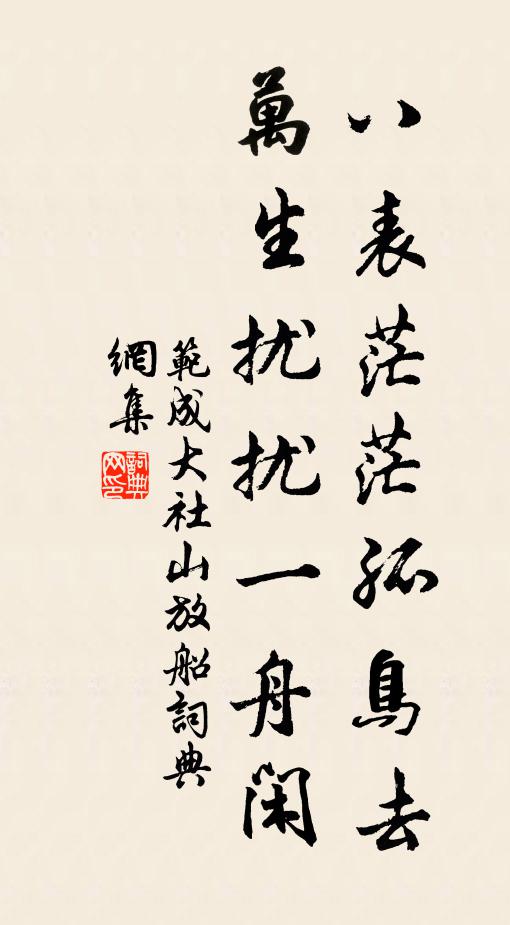 八表茫茫孤鳥去
萬生扰扰一舟閑
範成大社山放船詞典
網集
詞典网印